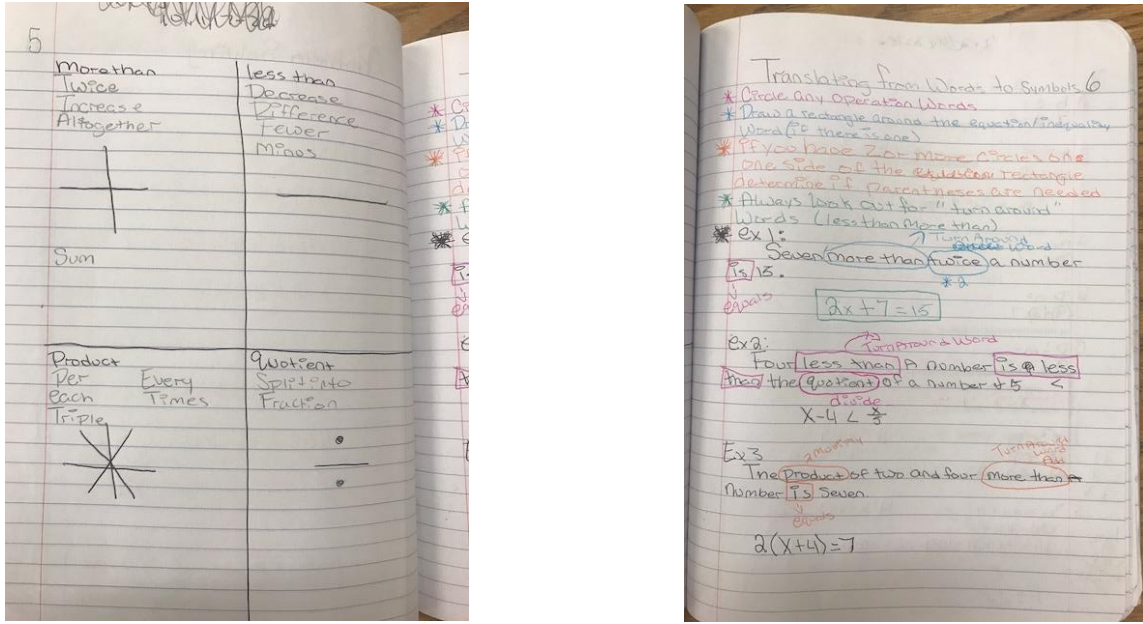 5
More than
Twice
Increase
Altogether
Sum
less than
Decrease
Difference
Fewer
Minus
Product
Per Every
each Times
Triple
Quotient
Split into
Fraction
Translating from Words to Symbols 6
* Circle any operation words
* Draw a rectangle around the equation/inequality
word (if there is one)
* If you have 2 or more circles one
one side of the rectangle
determine if parentheses are needed
* Always look out for "turn around"
words (less than more than)
Turn Around
Word
* ex1:
Seven more than twice a number
is 15.
* 2
equals
2x+7=15
ex2:
Turn Around Word
Four less than A number is a less
than the quotient of a number + 5 <
divide
x-4 < x/5
Ex3
Turn Around
Word
The product of two and four more than a
number is seven.
equals
2(x+4)=7